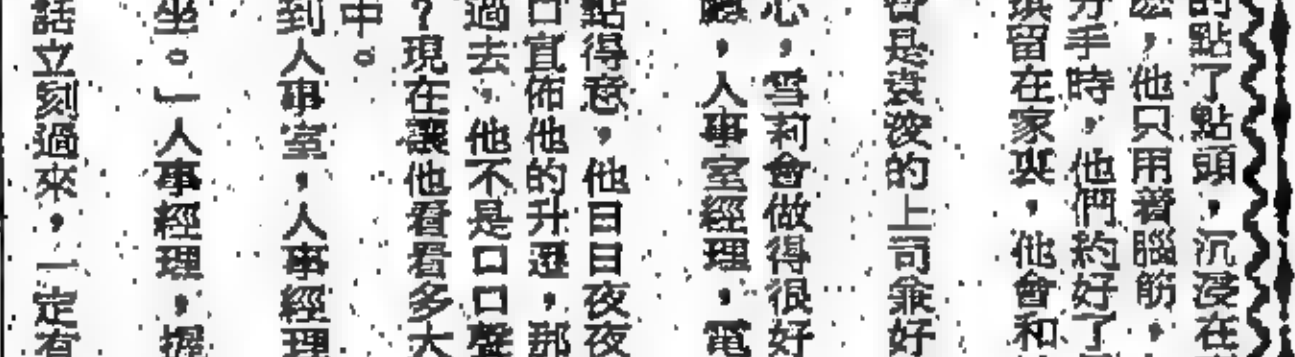 的點了點頭，沉浸在
他只用着腦筋，
分手時，他們約好了
續留在家與，他會和
曾是袁波的上司兼好
心，雪莉會做得很好
聽，人事室經理，電
點得意，他日日夜夜
口宣佈他的升遷，那
過去，他不是口口聲
？現在讓他看看多大
中。
到人事室，人事經理
坐。」人事經理，握
話立刻過來，一定有